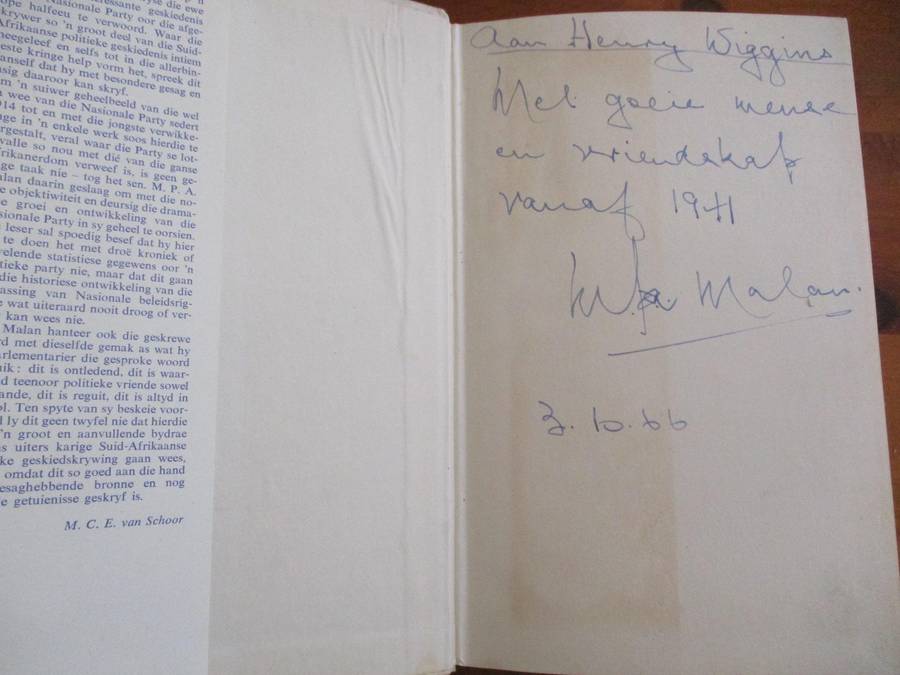 nasionale Party oor die afge-
ope halfeeu te verwoord. Waar die
krywer so 'n groot deel van die Suid-
Afrikaanse politieke geskiedenis intiem
meegeleef en selfs tot in die allerbin-
este kringe help vorm het, spreek dit
anself dat hy met besondere gesag en
sig daaroor kan skryf.
m 'n suiwer geheelbeeld van die wel
n wee van die Nasionale Party sedert
914 tot en met die jongste verwikke-
nge in 'n enkele werk soos hierdie te
rgestalt, veral waar die Party se lot-
valle so nou met dié van die ganse
frikanerdom verweef is, is geen ge-
ge taak nie – tog het sen. M. P. A.
alan daarin geslaag om met die no-
e objektiwiteit en deursig die drama-
e groei en ontwikkeling van die
sionale Party in sy geheel te oorsien.
leser sal spoedig besef dat hy hier
te doen het met droë kroniek of
velende statistiese gegewens oor 'n
tieke party nie, maar dat dit gaan
die historiese ontwikkeling van die
assing van Nasionale beleidsrig-
e wat uiteraard nooit droog of ver-
kan wees nie.
Malan hanteer ook die geskrewe
rd met dieselfde gemak as wat hy
arlementarier die gesproke woord
uik: dit is ontledend, dit is waar-
d teenoor politieke vriende sowel
ande, dit is reguit, dit is altyd in
ol. Ten spyte van sy beskeie voor-
l ly dit geen twyfel nie dat hierdie
'n groot en aanvullende bydrae
s uiters karige Suid-Afrikaanse
ke geskiedskrywing gaan wees,
omdat dit so goed aan die hand
esaghebbende bronne en nog
e getuienisse geskryf is.
M. C. E. van Schoor
Aan Henry Wiggins
Met goeie wense
en vriendskap
vanaf 1941
M.P.A. Malan.
3.10.66